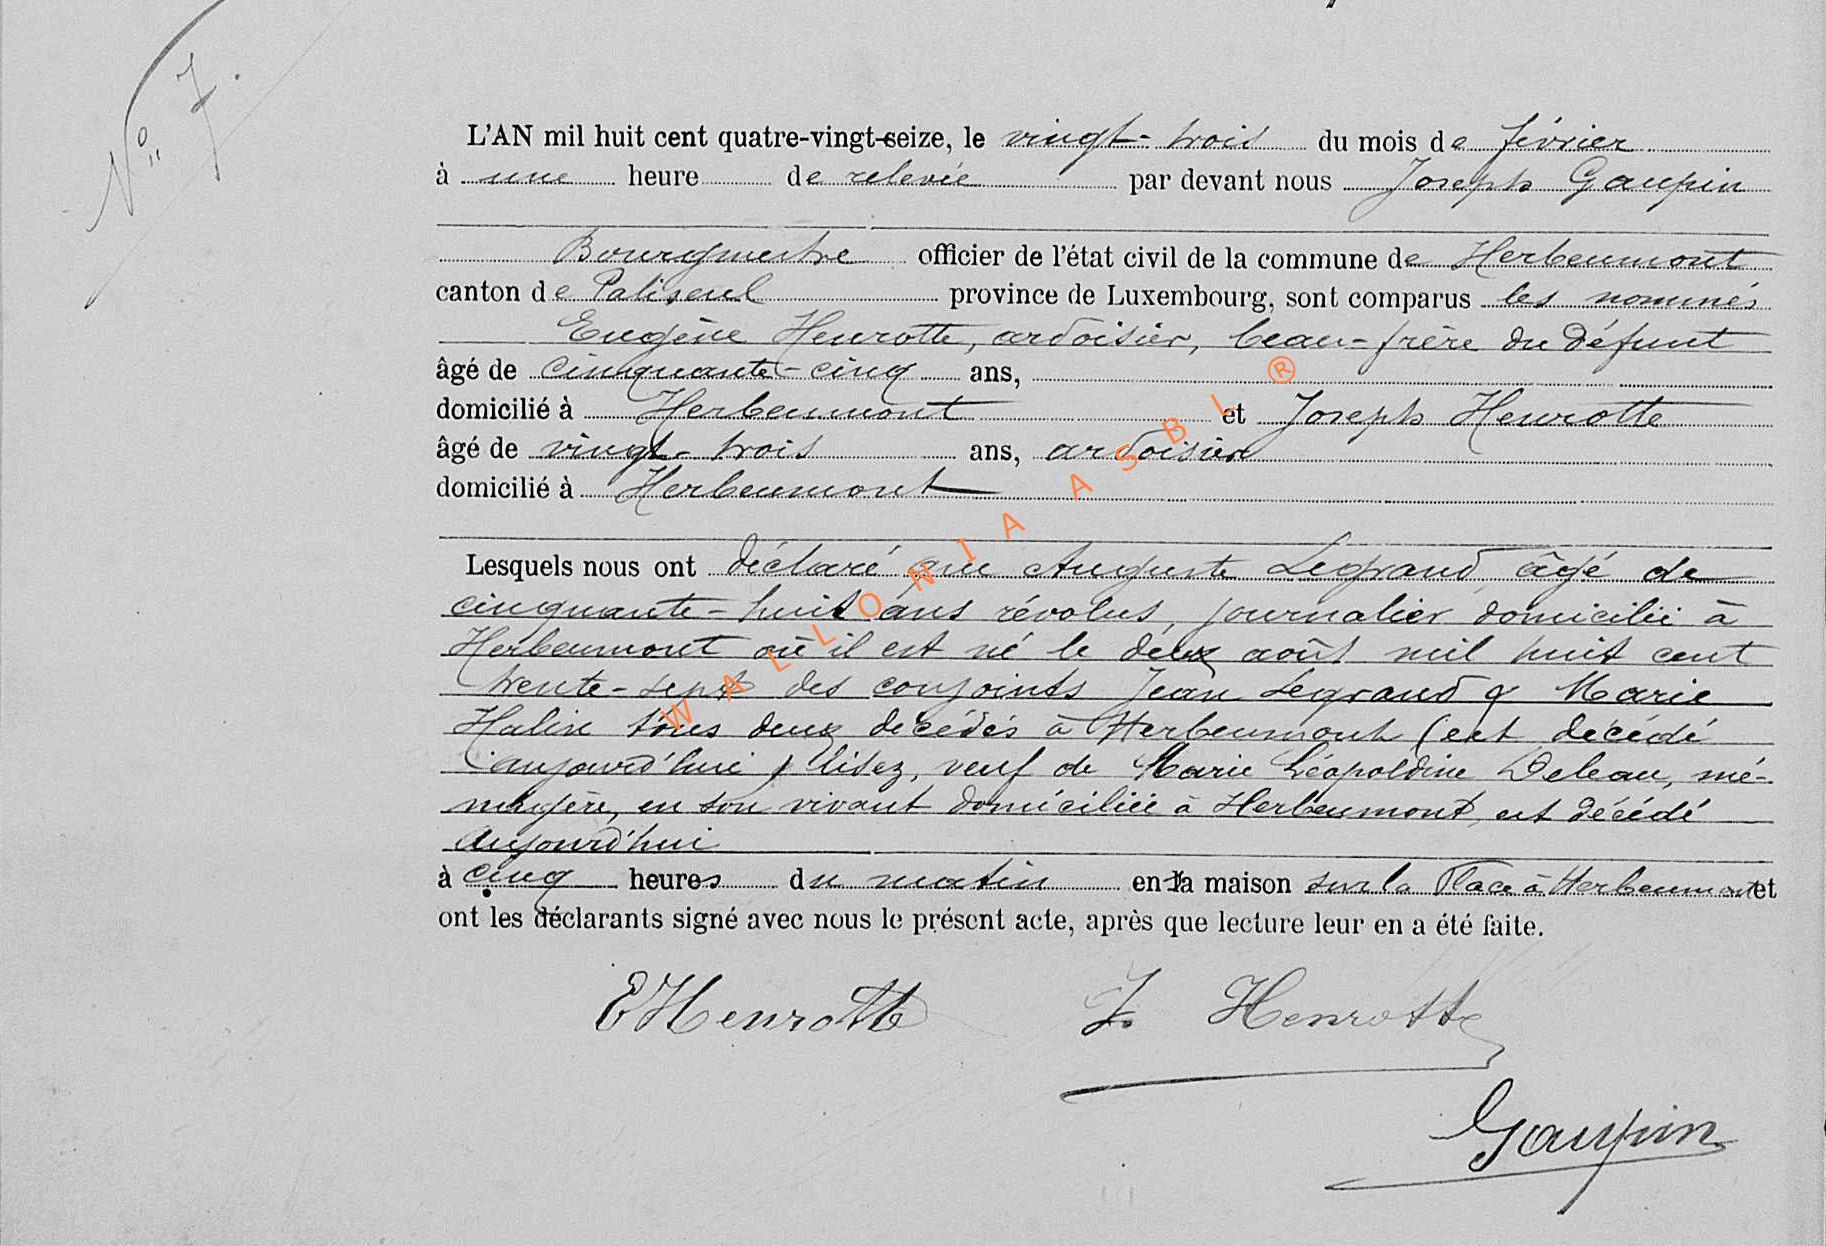 N° 7.
L'AN mil huit cent quatre-vingt-seize, le vingt-trois du mois de février
à une heure de relevée par devant nous Joseph Gaupin
Bourgmestre officier de l'état civil de la commune de Herbeumont
canton de Paliseul province de Luxembourg, sont comparus les nommés
Eugène Henrotte, ardoisier, beau-frère du défunt
âgé de cinquante-cinq ans,
domicilié à Herbeumont et Joseph Henrotte
âgé de vingt-trois ans, ardoisier
domicilié à Herbeumont
Lesquels nous ont déclaré que Auguste Legrand âgé de
cinquante-huit ans révolus, journalier domicilié à
Herbeumont où il est né le deux août mil huit cent
trente-sept des conjoints Jean Legrand & Marie
Halin tous deux décédés à Herbeumont (est décédé
aujourd'hui) lisez, veuf de Marie Léopoldine Deleau, mé-
nagère, en son vivant domiciliée à Herbeumont, est décédé
aujourd'hui
à cinq heures du matin en la maison sur la Place à Herbeumont et
ont les déclarants signé avec nous le présent acte, après que lecture leur en a été faite.
EHenrotte J. Henrotte
Gaupin
WALLONIA ASBL ®